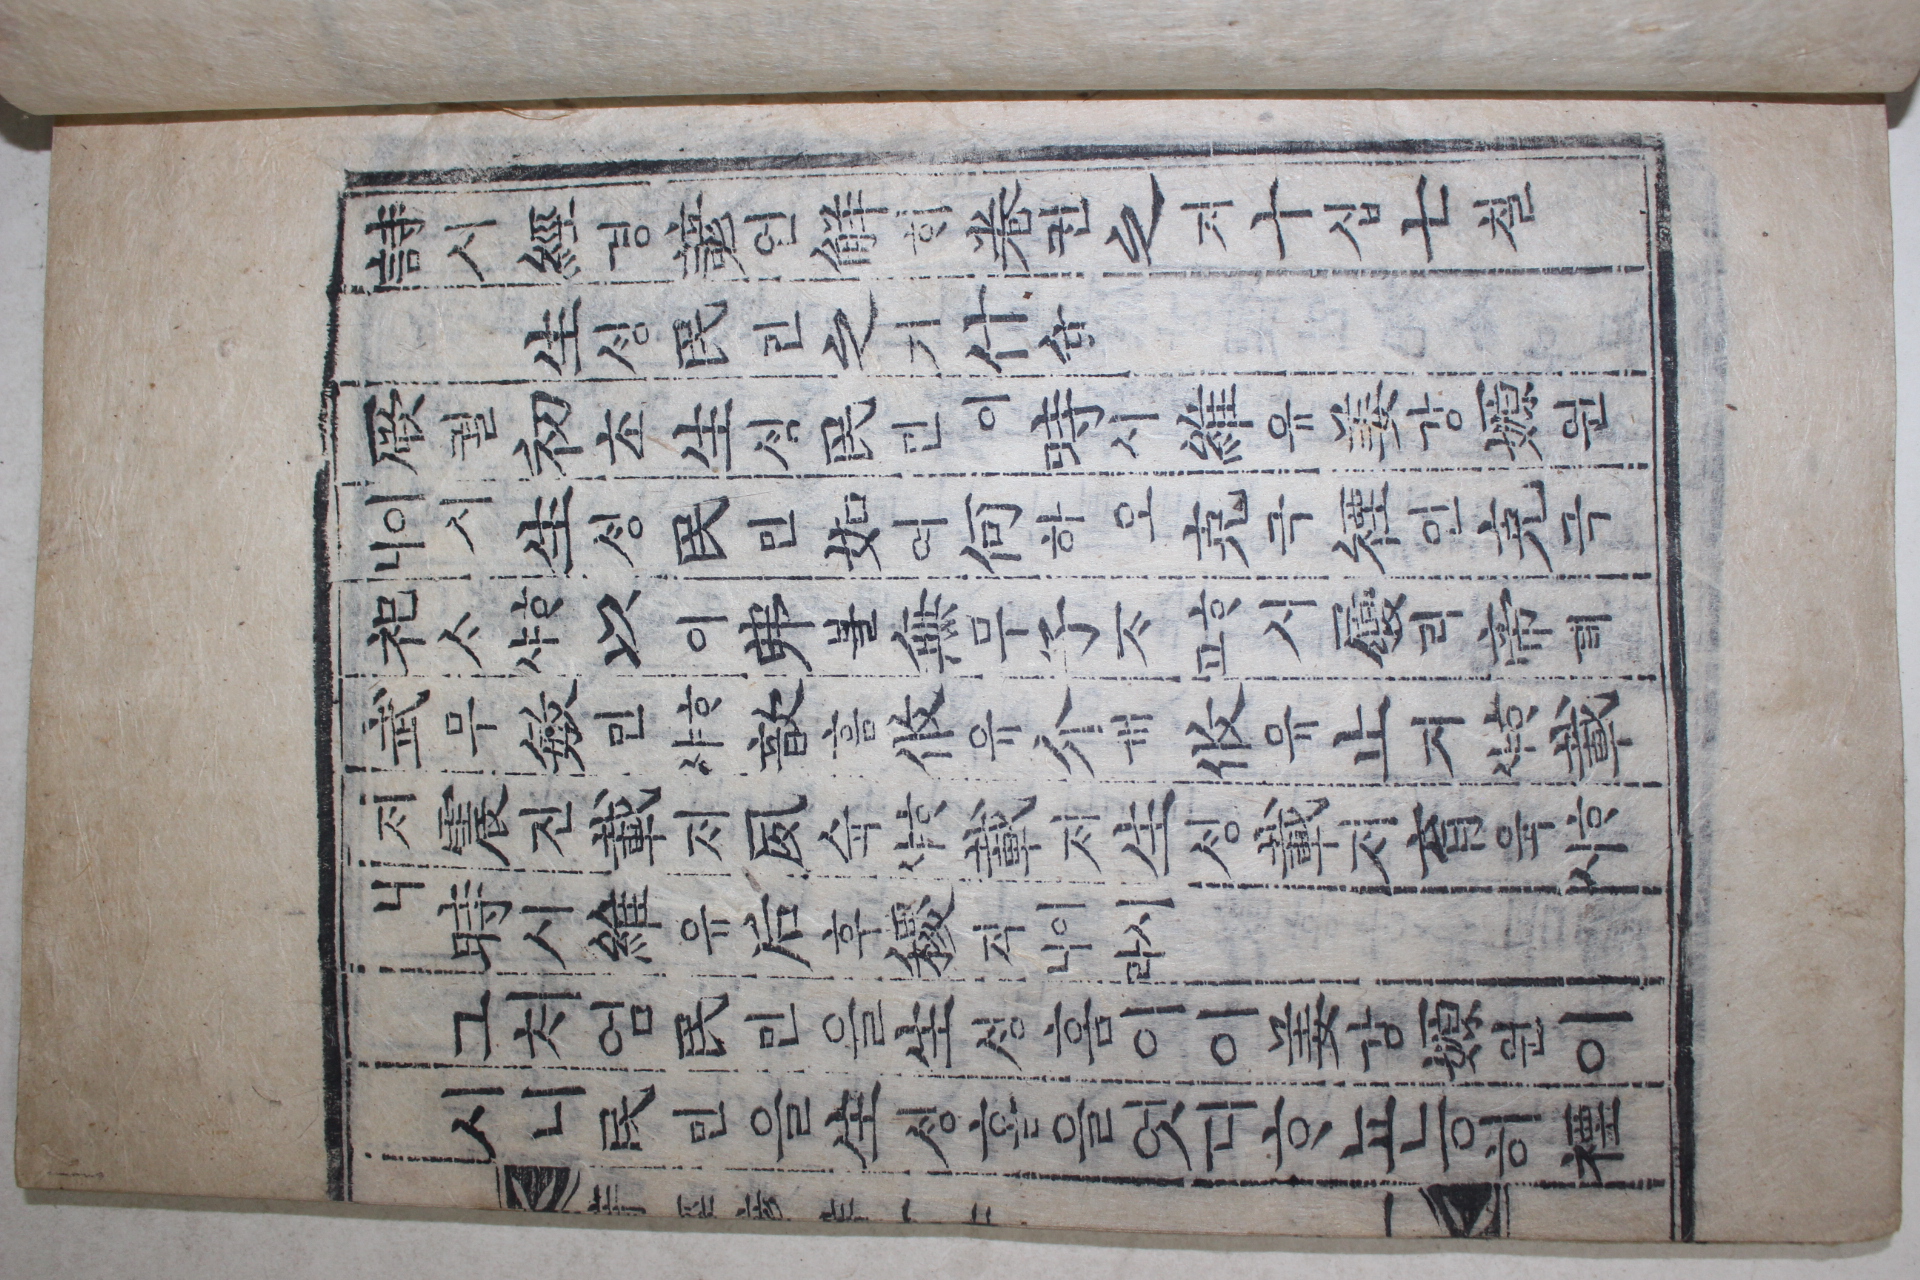 詩시經경諺언解ᄒᆡ卷권之지十십七칠
生ᄉᆡᆼ民민之지什습
厥궐初초生ᄉᆡᆼ民민이時시維유姜강嫄원
이시니生ᄉᆡᆼ民민如여何하오克극禋인克극
祀ᄉᆞᄒᆞ샤以이弗불無무子ᄌᆞᄒᆞ고시履리帝뎨
武무敏민ᄒᆞ샤歆흠攸유介개攸유止지ᄒᆞ샤載
ᄌᆡ震진載ᄌᆡ夙슉ᄒᆞ샤載ᄌᆡ生ᄉᆡᆼ載ᄌᆡ育육ᄒᆞ시
니時시維유后후稷직이시니라
그처엄民민을生ᄉᆡᆼ홈이이姜강嫄원이
시니民민을生ᄉᆡᆼ홈을엇디ᄒᆞ뇨ᄂᆞᆫ히禋